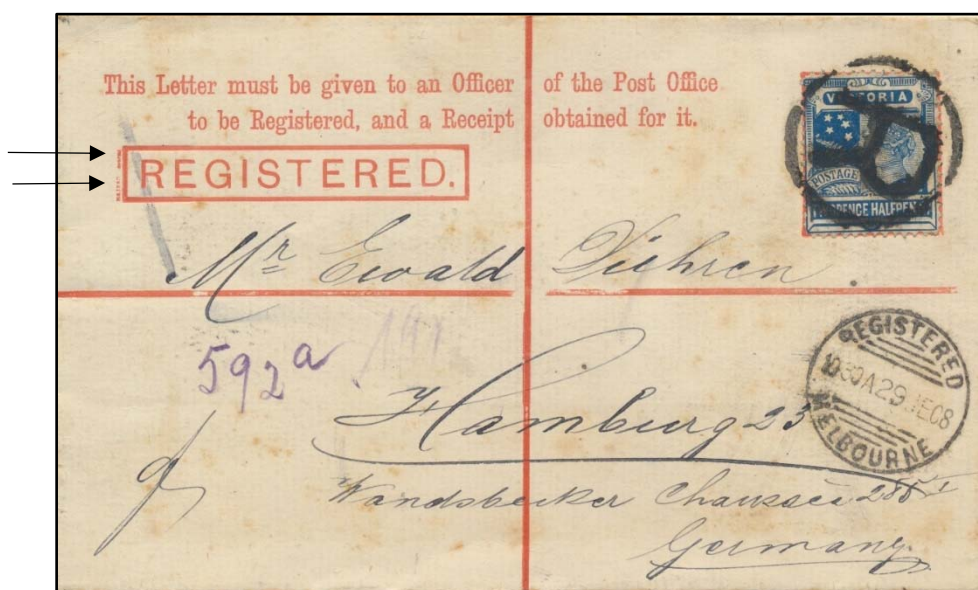 This Letter must be given to an Officer of the Post Office
to be Registered, and a Receipt obtained for it.
REGISTERED.
VICTORIA
POSTAGE
HALFPEN
Mr Ewald
592a
REGISTERED
10 30 A 29 08
MELBOURNE
Hamburg 23
Wandsbecker Chaussee
Germany.